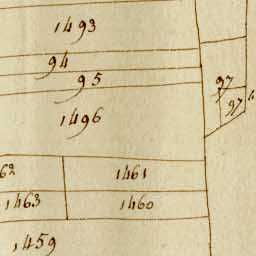 1493
94
95
97
97
1496
62
1461
1463
1460
1459